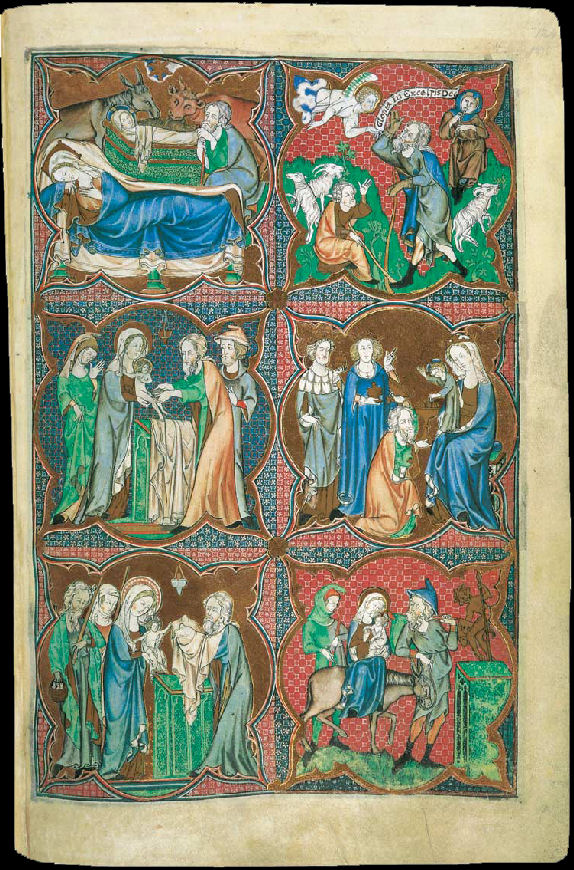 Gloria in Excelsis Deo